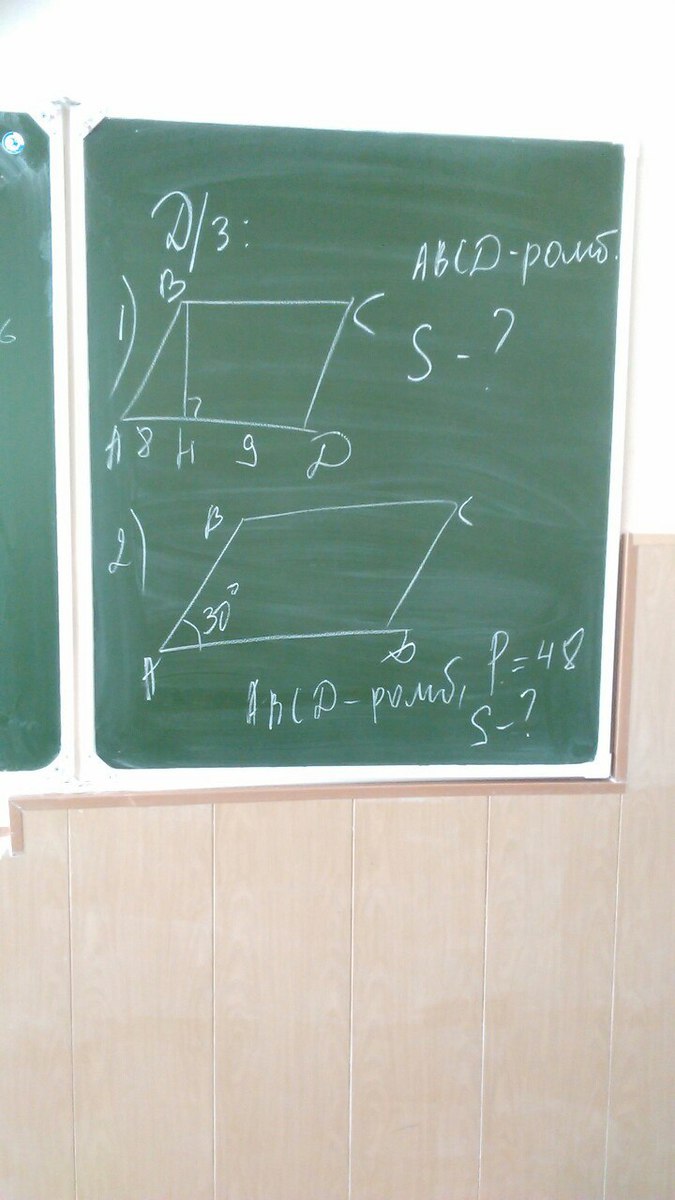 Д/з:
ABCD-ромб.
1)
B
C
S-?
A 8 H 9 D
2)
B
C
30°
A
D
ABCD-ромб, P=48
S-?